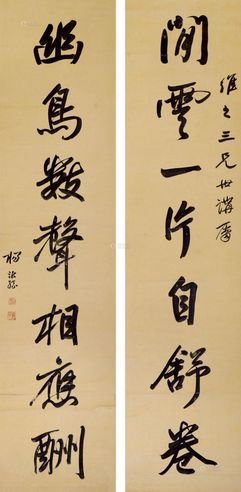 維之三兄世講屬
閒雲一片自舒卷
幽鳥數聲相應酬